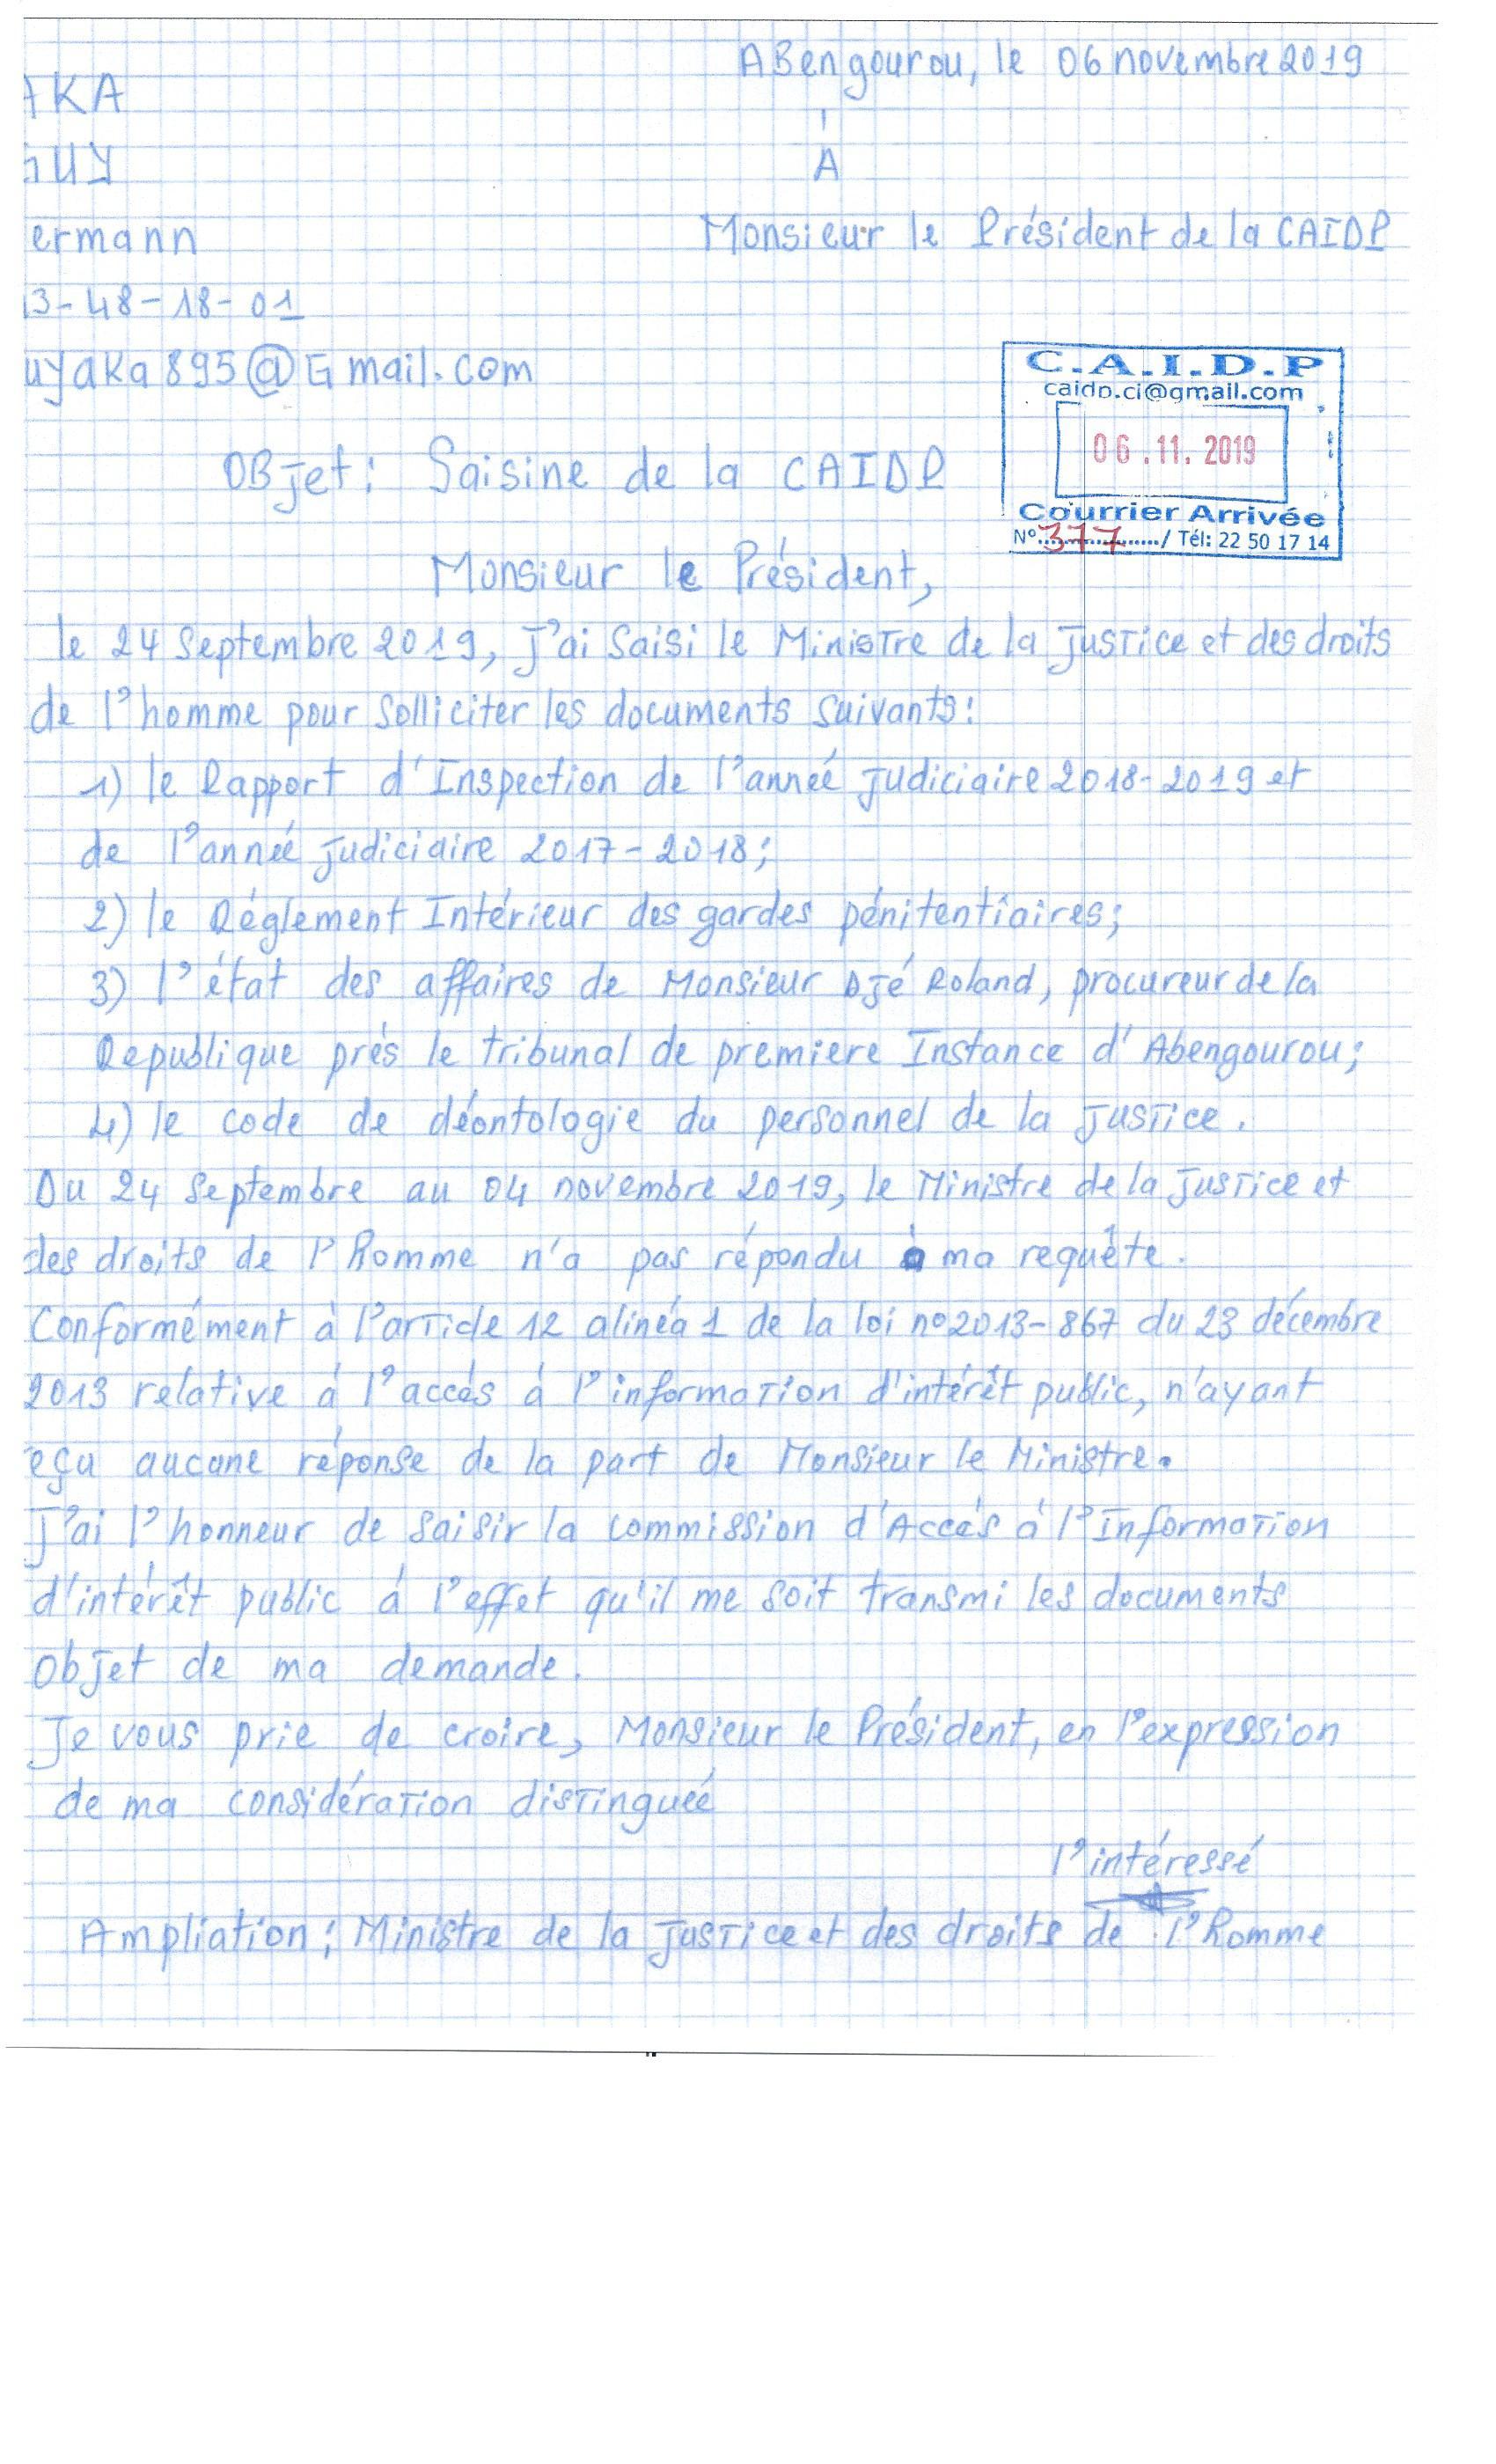 ABengourou, le 06 novembre 2019
AKA
GUY
ermann
À
Monsieur le Président de la CAIDP
3-48-18-01
uyaka895@Gmail.com
C.A.I.D.P
caidp.ci@gmail.com
06.11.2019
Courrier Arrivée
N° 377 / Tél: 22 50 17 14
OBjet: Saisine de la CAIDP
Monsieur le Président,
le 24 Septembre 2019, J'ai Saisi le Ministre de la Justice et des droits
de l'homme pour Solliciter les documents Suivants:
1) le Rapport d'Inspection de l'année Judiciaire 2018-2019 et
de l'année Judiciaire 2017-2018;
2) le Réglement Intérieur des gardes pénitentiaires;
3) l'état des affaires de Monsieur Djé Roland, procureur de la
Republique prés le tribunal de premiere Instance d'Abengourou;
4) le code de déontologie du personnel de la Justice.
Du 24 Septembre au 04 novembre 2019, le Ministre de la Justice et
des droits de l'Homme n'a pas répondu à ma requête.
Conformément à l'article 12 alinéa 1 de la loi n°2013-867 du 23 décembre
2013 relative á l'accés á l'information d'intérêt public, n'ayant
eçu aucune réponse de la part de Monsieur le Ministre.
J'ai l'honneur de Saisir la Commission d'Accés á l'Information
d'intérêt public á l'effet qu'il me Soit transmi les documents
objet de ma demande.
Je vous prie de croire, Monsieur le Président, en l'expression
de ma considération distinguée
l'intéressé
Ampliation: Ministre de la Justice et des droits de l'Homme